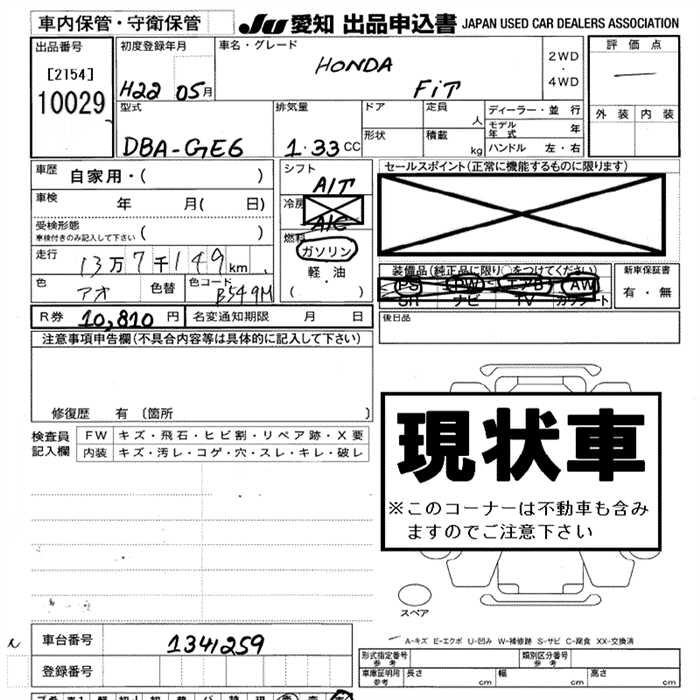 車内保管・守衛保管
JU 愛知 出品申込書 JAPAN USED CAR DEALERS ASSOCIATION
出品番号
[2154]
10029
初度登録年月
H22 05月
車名・グレード
HONDA
FiT
2WD
・
4WD
評価点
外装 内装
型式
DBA-GE6
排気量
1.33cc
ドア
形状
定員
人
積載
kg
ディーラー・並行
モデル年式 年
ハンドル 左・右
車歴
自家用・( )
車検
年 月( 日)
受検形態
車検付きのみ記入して下さい ( )
走行
13万7千149km
色
アオ
色替
色コード
B549M
シフト
A/T
冷房
A/C
燃料
ガソリン
軽・油
( )
セールスポイント(正常に機能するものに限ります)
装備品(純正品に限り○をつけてください)
PS PW エアB AW
SR ナビ TV カワシート
新車保証書
有・無
R券 10,810円 名変通知期限 月 日
後日品
注意事項申告欄(不具合内容等は具体的に記入して下さい)
修復歴 有 〔箇所 〕
検査員
記入欄
FW キズ・飛石・ヒビ割・リペア跡・X要
内装 キズ・汚レ・コゲ・穴・スレ・キレ・破レ
現状車
※このコーナーは不動車も含み
ますのでご注意下さい
スペア
A-キズ E-エクボ U-凹み W-補修跡 S-サビ C-腐食 XX-交換済
車台番号 1341259
登録番号
形式指定番号
参考
類別区分番号
参考
車庫証明用
参考
長さ cm 幅 cm 高さ cm